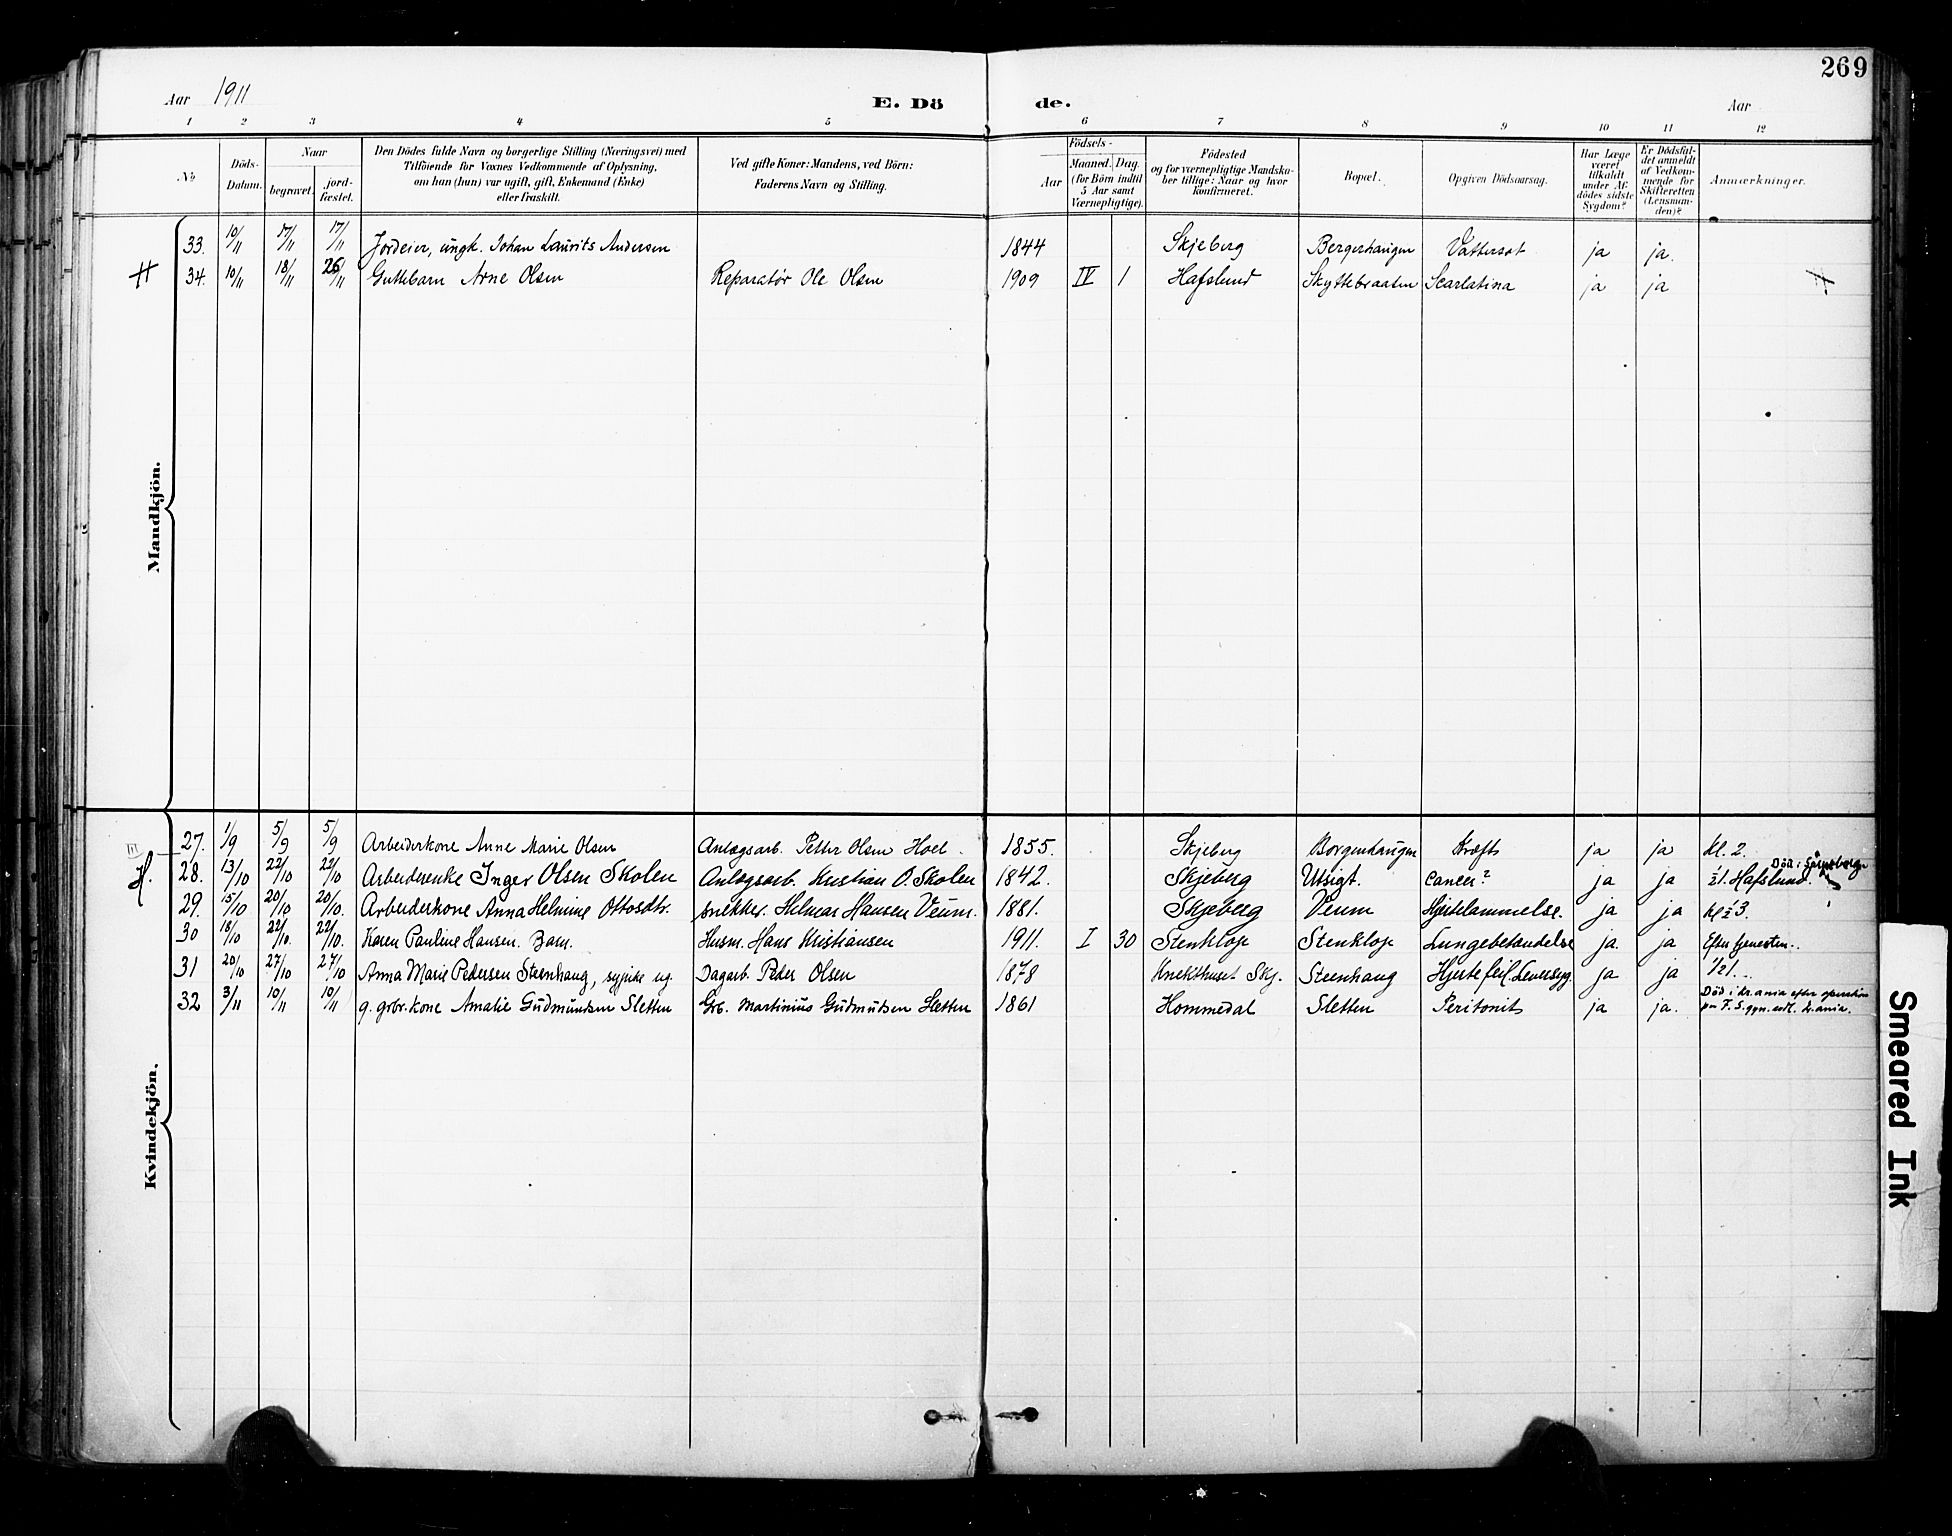 269
Aar 1911 E. Dö de. Aar
1 2 3 4 5 6 7 8 9 10 11 12
No
Döds-Datum.
Naar begravet. jord-fæstet.
Den Dödes fulde Navn og borgerlige Stilling (Næringsvei) med Tilföiende for Voxnes Vedkommende af Oplysning, om han (hun) var ugift, gift, Enkemand (Enke) eller fraskilt.
Ved gifte Koner: Mandens, ved Börn: Faderens Navn og Stilling.
Födsels- Aar Maaned. Dag. (for Börn indtil 5 Aar samt Værnepligtige).
Födested og for værnepligtige Mandskaber tillige: Naar og hvor konfirmeret.
Bopæl.
Opgiven Dödsaarsag.
Har Læge været tilkaldt under Afdödes sidste Sygdom?
Er Dödsfaldet anmeldt af Vedkommende for Skifteretten (Lensmanden)?
Anmærkninger.
Mandkjön.
33. 10/11 17/11 17/11 Jordeier, ungk. Johan Laurits Andersen 1844 Skjeberg Bergerhaugen Vattersot ja ja.
H 34. 10/11 18/11 26/11 Guttebarn Arne Olsen Reparatør Ole Olsen 1909 IV 1 Hafslund Skyttebraaten Scarlatina ja ja
Kvindekjön.
27. 1/9 5/9 5/9 Arbeiderkone Anne Marie Olsen Anlægsarb. Petter Olsen Hoel. 1855. Skjeberg Borgenhaugen Kræft ja ja Kl. 2.
H. 28. 13/10 22/10 22/10 Arbeiderenke Inger Olsen Skolen Anlægsarb. Kristian O. Skolen 1842. Skjeberg Utsigt. Cancer? ja ja Död i Sarpsborg ½1. Hafslund.
29. 15/10 20/10 20/10. Arbeiderkone Anna Helmine Ottosdtr. snekker. Hilmar Hansen Veum. 1881. Skjeberg Veum Hjertelammelse. ja ja Kl ½3.
30 18/10 22/10. 22/10. Karen Pauline Hansen. Barn. Husm. Hans Kristiansen 1911. I 30 Stenklop Stenklop Lungebetændelse ja. ja Efter tjenesten..
31 20/10 27/10 27/10 Anna Marie Pedersen Steenhaug, sypike ug. Dagarb. Peder Olsen 1878 Knekthuset Skj. Steenhaug Hjertefeil, Leversyg. ja ja ½1..
32 3/11 10/11 10/11 g. grbr. kone Amalie Gudmundsen Sletten Grb. Martinius Gudmundsen Sletten 1861 Hommedal Sletten Peritonit ja ja. Död i Kr.ania efter operation paa F. S. gyn. Kr.ania.
Smeared Ink